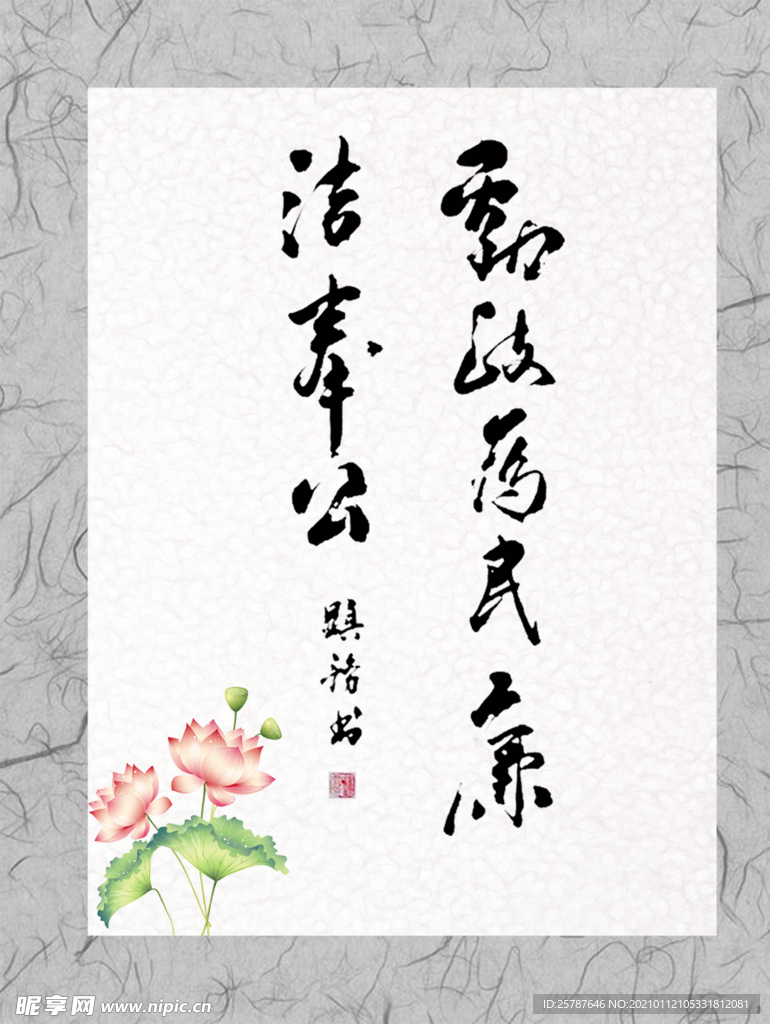 勤政为民廉
洁奉公
书
昵享网 www.nipic.cn
ID:25787646 NO:20210112105331812081